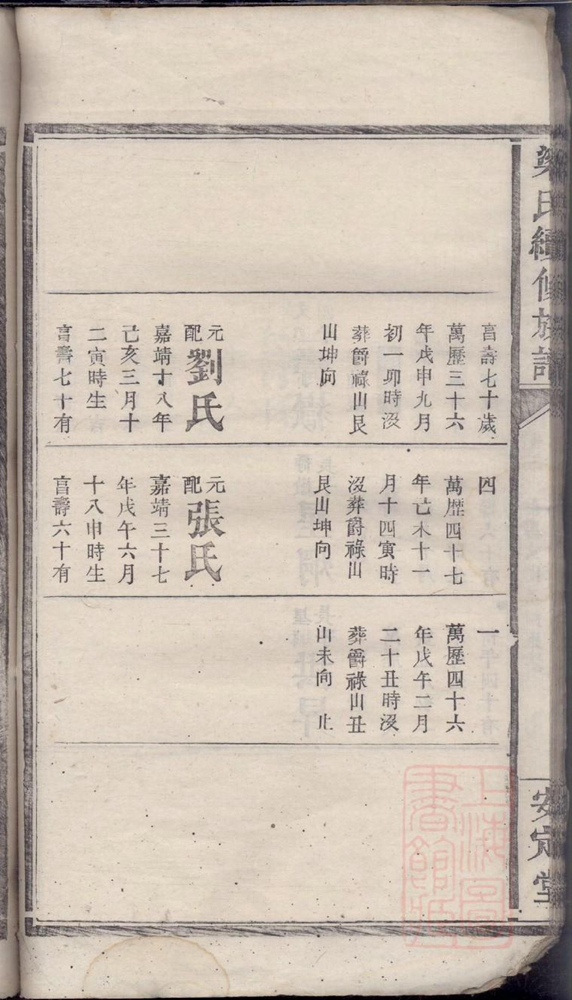 梁氏續修族譜
安定堂
㫖壽七十歲
萬曆三十六
年戊申九月
初一卯時沒
葬爵祿山艮
山坤向
元配劉氏
嘉靖十八年
己亥三月十
二寅時生
㫖壽七十有
四
萬歷四十七
年己未十一
月十四寅時
沒葬爵祿山
艮山坤向
元配張氏
嘉靖三十七
年戊午六月
十八申時生
㫖壽六十有
一
萬歷四十六
年戊午二月
二十丑時沒
葬爵祿山丑
山未向 止
上海圖書館藏